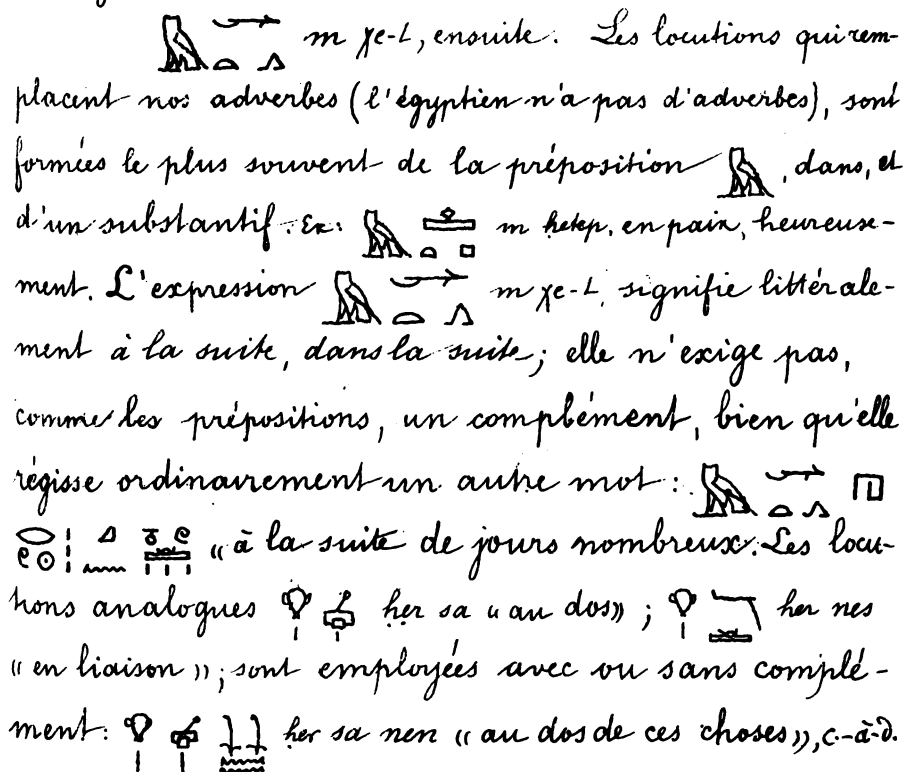 𓅓𓆱𓏏𓂻 m χe-t, ensuite. Les locutions qui rem-
placent nos adverbes (l'égyptien n'a pas d'adverbes), sont
formées le plus souvent de la préposition 𓅓, dans, et
d'un substantif. Ex: 𓅓𓊵𓏏𓊪 m ḥetep, en paix, heureuse-
ment. L'expression 𓅓𓆱𓏏𓂻 m χe-t, signifie littérale-
ment à la suite, dans la suite; elle n'exige pas,
comme les prépositions, un complément, bien qu'elle
régisse ordinairement un autre mot: 𓅓𓆱𓏏𓂻𓉔
𓂋𓏲𓇳𓏥𓈎𓈖 « à la suite de jours nombreux. Les locu-
tions analogues 𓁷𓏤 ḥer sa « au dos » ; 𓁷𓏤 ḥer nes
« en liaison »; sont employées avec ou sans complé-
ment: 𓁷𓏤 ḥer sa nen « au dos de ces choses », c.-à-d.